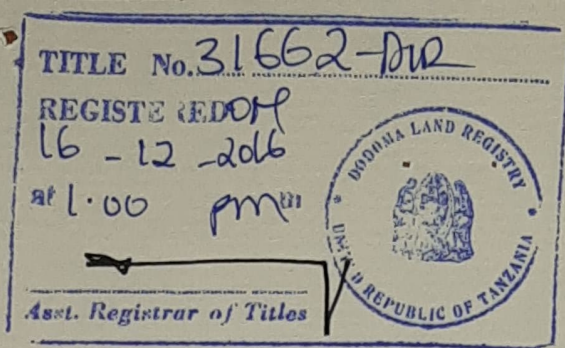 TITLE No. 31662-DLR
REGISTERED ON
16 - 12 - 2016
at 1.00 pm
Asst. Registrar of Titles
DODOMA LAND REGISTRY
UNITED REPUBLIC OF TANZANIA